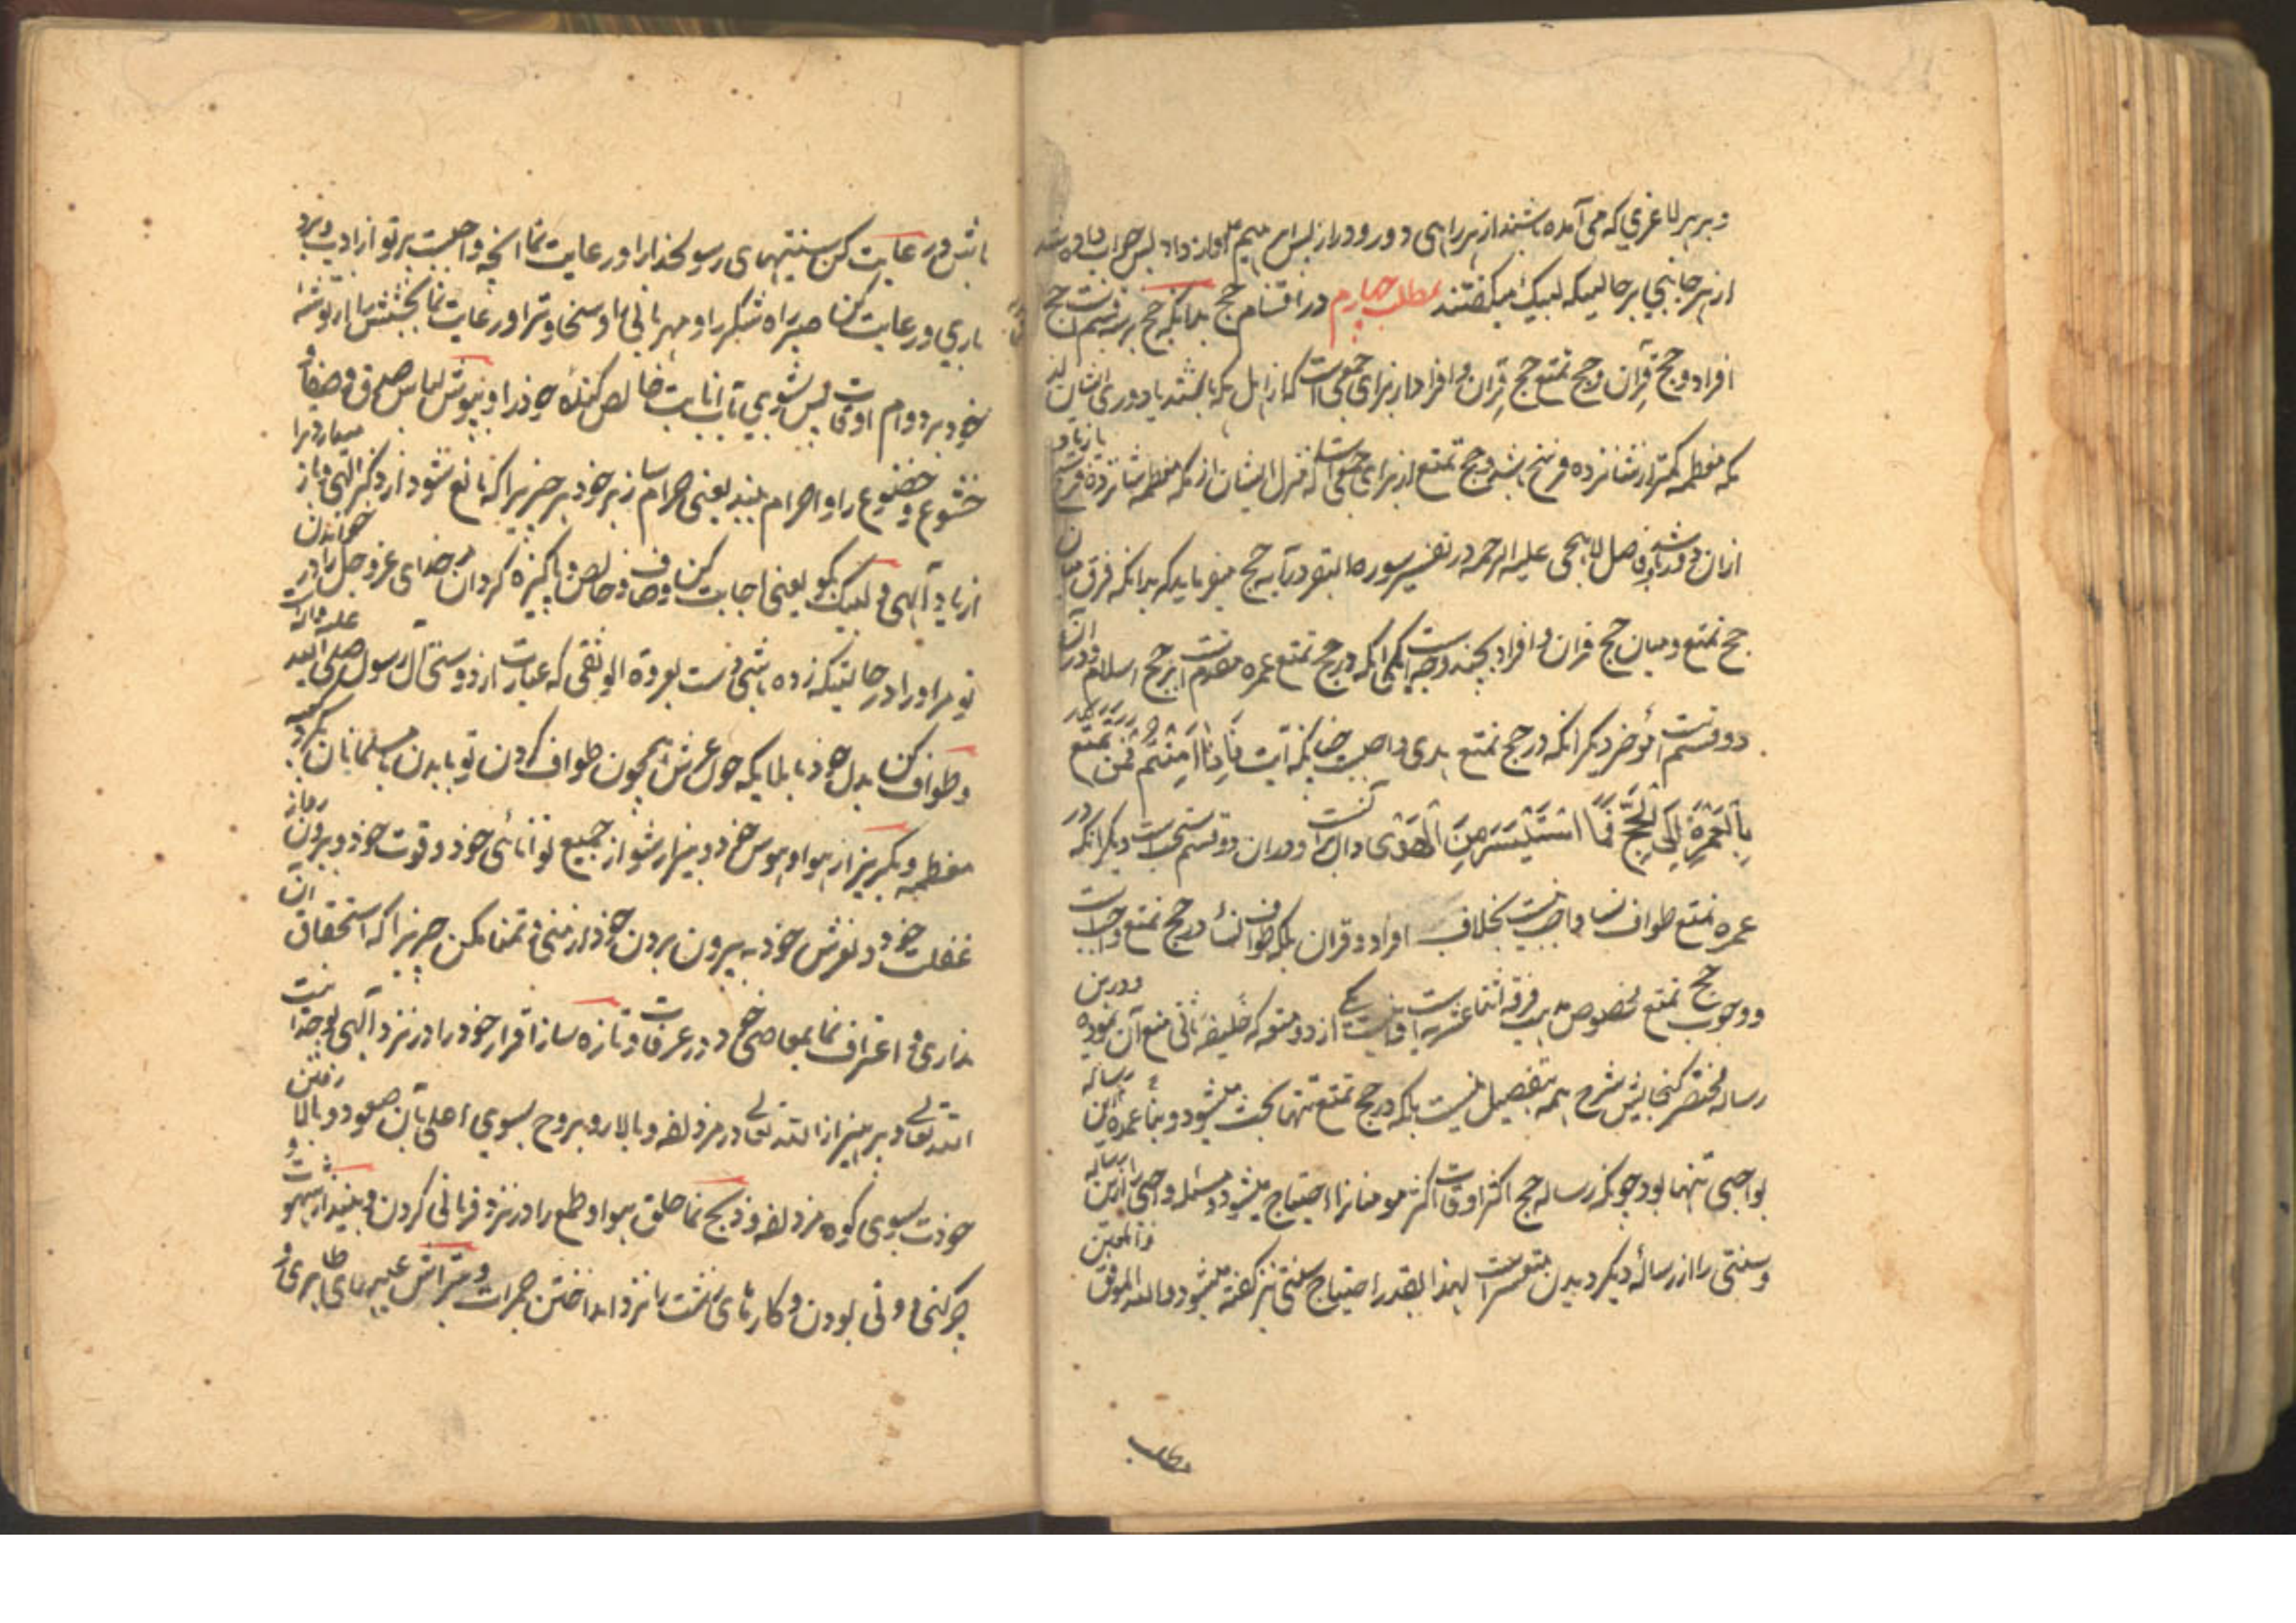 و بر هر لاغری که می آمده باشند از هر راهی دور و دراز پس ابراهیم آواز داد پس جواب داده شد
از هر جانبی بر حالیکه لبیک میگفتند مطلب چهارم در اقسام حج بدانکه حج بر سه قسمست حج
افراد و حج قِران و حج تمتع حج قِران و افراد از برای جمعی است که از اهل مکه باشند یا دوری ایشان از
مکه معظمه کمتر از شانزده فرسخ باشد و حج تمتع از برای جمعی است که منزل ایشان از مکه معظمه شانزده فرسخ یا زیاده
از آن دور باشد و فاضل لاهیجی علیه الرحمه در تفسیر سوره البقر در آیه حج میفرماید که بدانکه فرق میان
حج تمتع و میان حج قران و افراد بچند وجه است یکی آنکه در حج تمتع عمره مقدم است بر حج اسلام و در آن
دو قسم مؤخر دیگر آنکه در حج تمتع هدی واجبست چنانکه آیت فَاِذَا اَمِنْتُمْ فَمَنْ تَمَتَّعَ
بِالْعُمْرَةِ اِلَى الْحَجِّ فَمَا اسْتَيْسَرَ مِنَ الْهَدْیِ دال بر آنست و در آن دو قسم مستحب است دیگر آنکه در
عمره تمتع طواف نساء واجب نیست بخلاف افراد و قران بلکه طواف نساء در حج تمتع واجب است
و وجوب حج تمتع مخصوص بمذهب فرقه اثنا عشریه است و این یکی از دو متعه که خلیفه ثانی منع آن نموده و درین
رساله مختصر گنجایش شرح همه بتفصیل نیست بلکه در حج تمتع تنها بحث میشود و بناء عمده این رساله
بواجبی تنها بود چونکه رساله حج اکثر اوقات اکثر مومنانرا احتیاج میشود و مسئله واجبی را ازین رساله
و سنتی را از رساله دیگر دیدن متعسر است لهذا بقدر احتیاج سنتی نیز گفته میشود و الله الموفق و المعین
مطلب
باش و رعایت کن سنتیهای رسولخدا را و رعایت نما آنچه واجبست بر تو از ادب و برد
باری و رعایت کن صبر را و شکر را و مهربانی را و سخاوترا و رعایت نما بخشش را از توشه
خود بر دوام اوقات پس بشوی بآب انابت خالص گناه خود را و بپوش لباس صدق و صفا و
خشوع و خضوع را و احرام ببند یعنی حرام ساز بر خود هر چیزیرا که مانع شود از ذکر الهی و باز میدارد ترا
از یاد الهی و لبیک بگو یعنی اجابت کن صاف و خالص و پاکیزه گردان مر خدای عز و جل را در خواندن
تو مر او را در حالتیکه زده باشی دست بعروة الوثقی که عبارت از دوستی آل رسول صلی الله علیه و آله است
و طواف کن بدل خود با ملایکه حول عرش همچون طواف کردن تو با بدن با مسلمانان بگرد کعبه
معظمه و بگریز از هوا و هوس خود و بیزار شو از جمیع توانائی خود و قوت خود و بیرون رو از
غفلت خود و لغزش خود به بیرون بردن خود از منی و تمنا مکن چیزیرا که استحقاق آن
نداری و اعتراف نما بمعاصی خود در عرفات و تازه ساز اقرار خود را در نزد الهی بوحدانیت
الله تعالی و بپرهیز از الله تعالی در مزدلفه و بالا رو بروح بسوی اعلی بآن صعود و بالا رفتن
خودت بسوی کوه مزدلفه و ذبح نما حلق هوا و طمع را در نزد قربانی کردن و بینداز شهوت و
چرکنی و دنی بودن و کارهای زشت را نزد انداختن جمرات و بتراش عیبهای ظاهری و